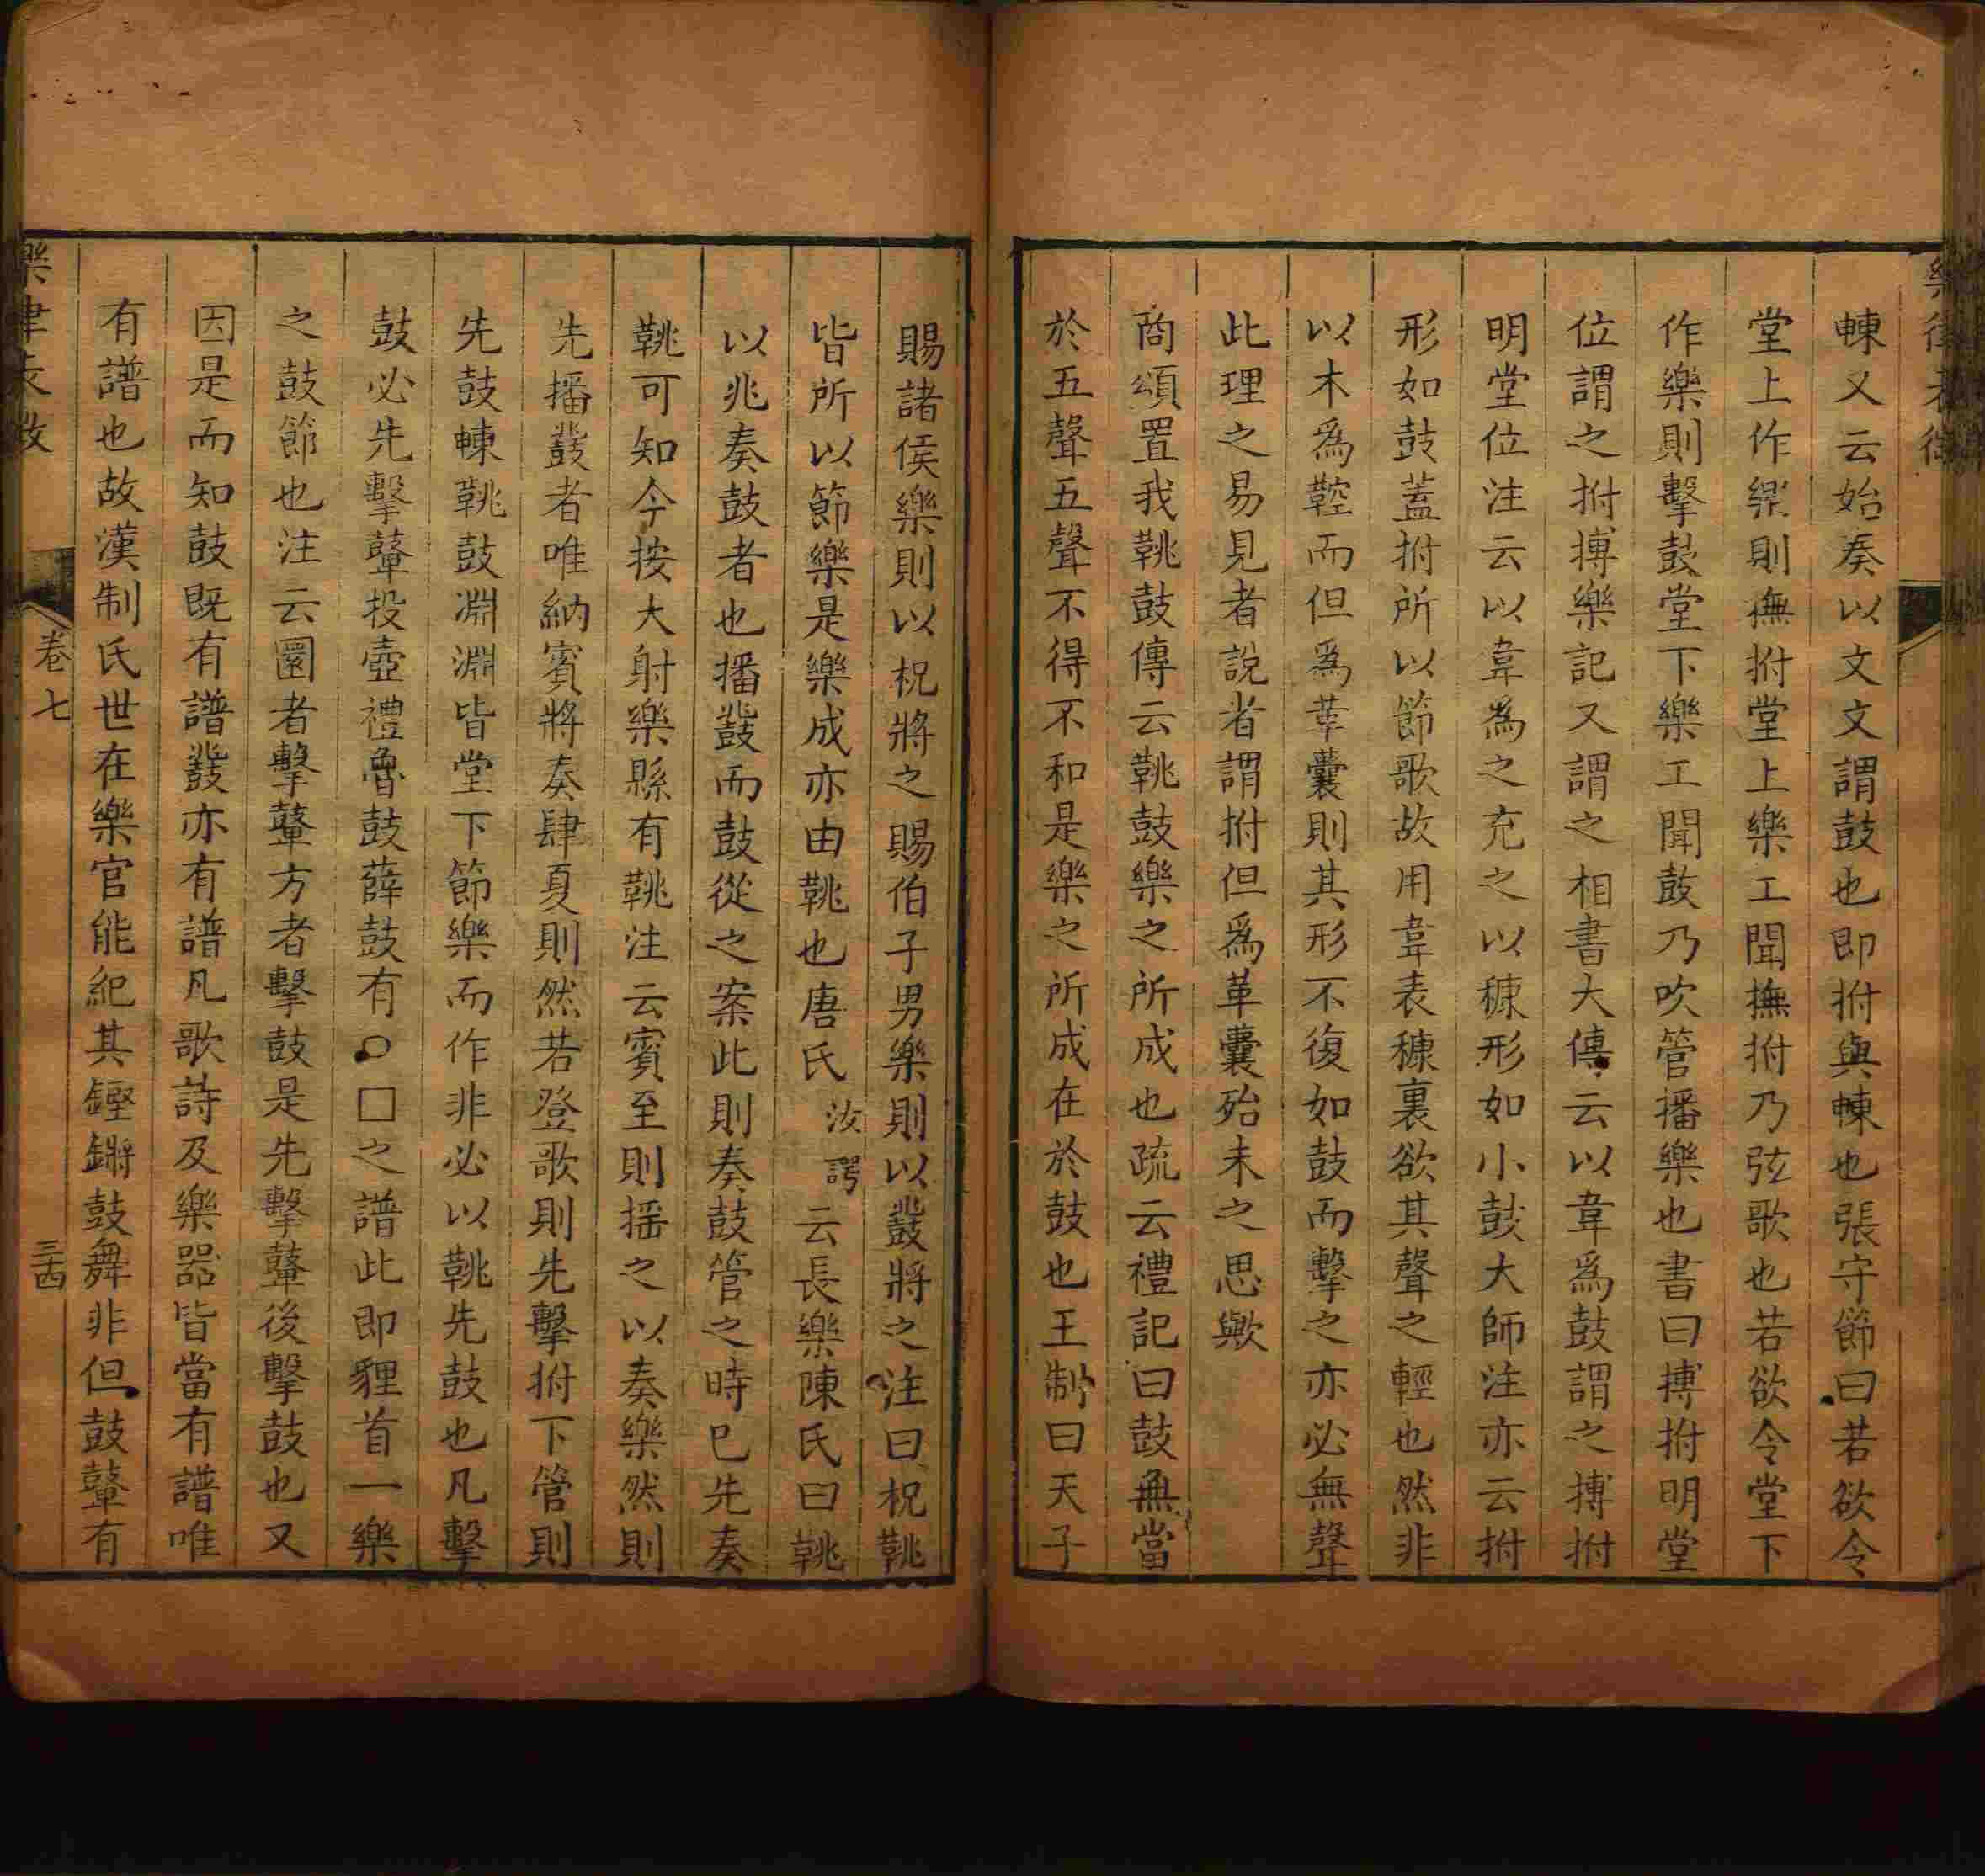 𣌾又云始奏以文文謂鼓也即拊與𣌾也張守節曰若欲令
堂上作樂則撫拊堂上樂工聞撫拊乃弦歌也若欲令堂下
作樂則擊鼓堂下樂工聞鼓乃吹管播樂也書曰搏拊明堂
位謂之拊搏樂記又謂之相書大傳云以韋爲鼓謂之搏拊
明堂位注云以韋爲之充之以穅形如小鼓大師注亦云拊
形如鼓蓋拊所以節歌故用韋表穅裏欲其聲之輕也然非
以木爲鞚而但爲革囊則其形不復如鼓而擊之亦必無聲
此理之易見者說者謂拊但爲革囊殆未之思歟
商頌置我鞉鼓傳云鞉鼓樂之所成也疏云禮記曰鼓無當
於五聲五聲不得不和是樂之所成在於鼓也王制曰天子
賜諸侯樂則以柷將之賜伯子男樂則以鼗將之注曰柷鞉
皆所以節樂是樂成亦由鞉也唐氏汝諤云長樂陳氏曰鞉
以兆奏鼓者也播鼗而鼓從之案此則奏鼓管之時已先奏
鞉可知今按大射樂縣有鞉注云賓至則搖之以奏樂然則
先播鼗者唯納賓將奏肆夏則然若登歌則先擊拊下管則
先鼓𣌾鞉鼓淵淵皆堂下節樂而作非必以鞉先鼓也凡擊
鼓必先擊鼙投壺禮魯鼓薛鼓有○□之譜此即貍首一樂
之鼓節也注云圜者擊鼙方者擊鼓是先擊鼙後擊鼓也又
因是而知鼓既有譜鼗亦有譜凡歌詩及樂器皆當有譜唯
有譜也故漢制氏世在樂官能紀其鏗鏘鼓舞非但鼓鼙有
卷七
三四